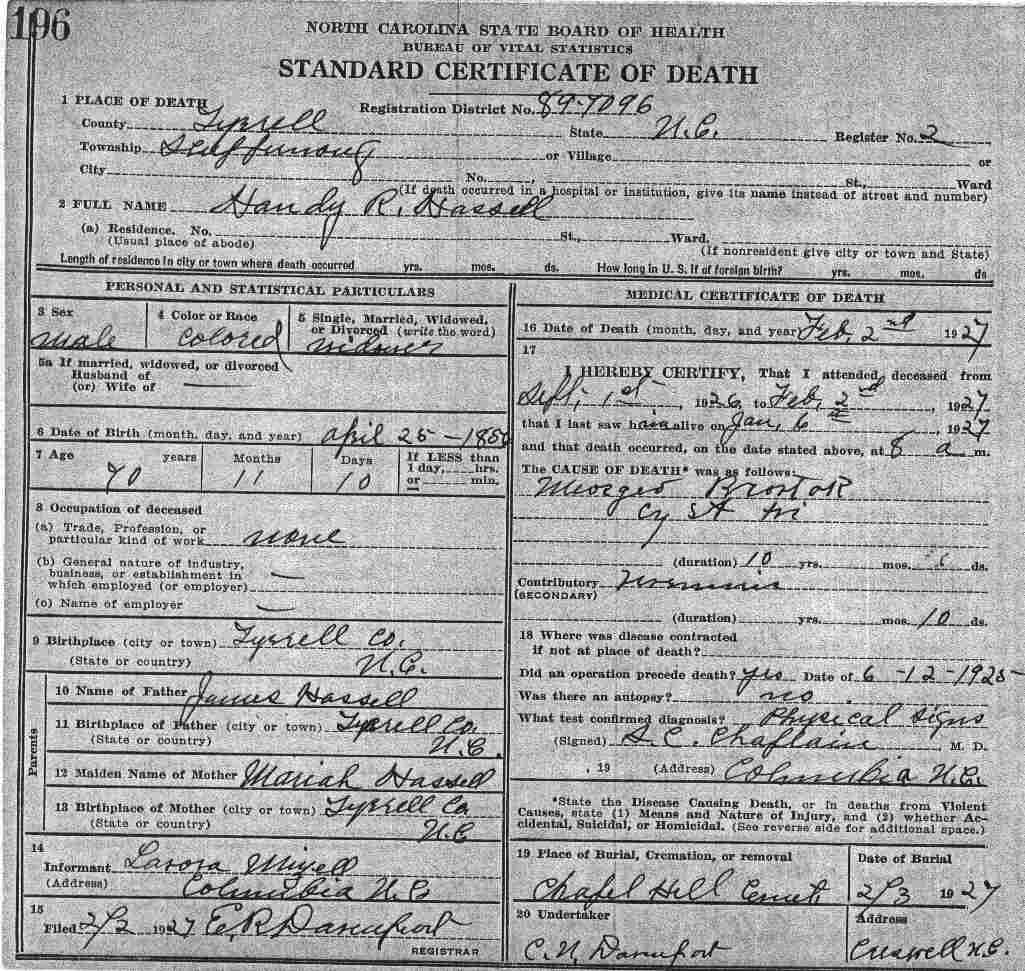 196
NORTH CAROLINA STATE BOARD OF HEALTH
BUREAU OF VITAL STATISTICS
STANDARD CERTIFICATE OF DEATH
1 PLACE OF DEATH
Registration District No. 89-7096
County Tyrrell State N.C. Register No. 2
Township or Village or
City No. , St., Ward
(If death occurred in a hospital or institution, give its name instead of street and number)
2 FULL NAME Handy R. Hassell
(a) Residence. No. St., Ward,
(Usual place of abode) (If nonresident give city or town and State)
Length of residence in city or town where death occurred yrs. mos. ds. How long in U. S. if of foreign birth? yrs. mos. ds
PERSONAL AND STATISTICAL PARTICULARS
3 Sex
male
4 Color or Race
Colored
5 Single, Married, Widowed,
or Divorced (write the word)
widower
5a If married, widowed, or divorced
Husband of
(or) Wife of
6 Date of Birth (month, day, and year) April 25-
7 Age years Months Days
70 11 10
If LESS than
1 day, hrs.
or min.
8 Occupation of deceased
(a) Trade, Profession, or
particular kind of work none
(b) General nature of industry,
business, or establishment in
which employed (or employer)
(c) Name of employer
9 Birthplace (city or town) Tyrrell Co.
(State or country) N.C.
Parents
10 Name of Father James Hassell
11 Birthplace of Father (city or town) Tyrrell Co.
(State or country) N.C.
12 Maiden Name of Mother Mariah Hassell
13 Birthplace of Mother (city or town) Tyrrell Co
(State or country) N.C
14
Informant
(Address) Columbia N.C
15
Filed 2/2 1927 E.R. Davenport
REGISTRAR
MEDICAL CERTIFICATE OF DEATH
16 Date of Death (month, day, and year) Feb, 2nd 1927
17
I HEREBY CERTIFY, That I attended deceased from
Sept, 1st, 1926, to Feb, 2nd, 1927
that I last saw h alive on Jan, 6, 1927
and that death occurred, on the date stated above, at 8 a m.
The CAUSE OF DEATH* was as follows:
(duration) 10 yrs. mos. ds.
Contributory
(SECONDARY)
(duration) yrs. mos. 10 ds.
18 Where was disease contracted
if not at place of death?
Did an operation precede death? yes Date of 6-12-1925
Was there an autopsy? no
What test confirmed diagnosis? Physical Signs
(Signed) , M. D.
, 19 (Address) Columbia N.C.
*State the Disease Causing Death, or in deaths from Violent
Causes, state (1) Means and Nature of Injury, and (2) whether Ac-
cidental, Suicidal, or Homicidal. (See reverse side for additional space.)
19 Place of Burial, Cremation, or removal
Chapel Hill Cemet
Date of Burial
2/3 1927
20 Undertaker
C.N. Davenport
Address
Creswell N.C.